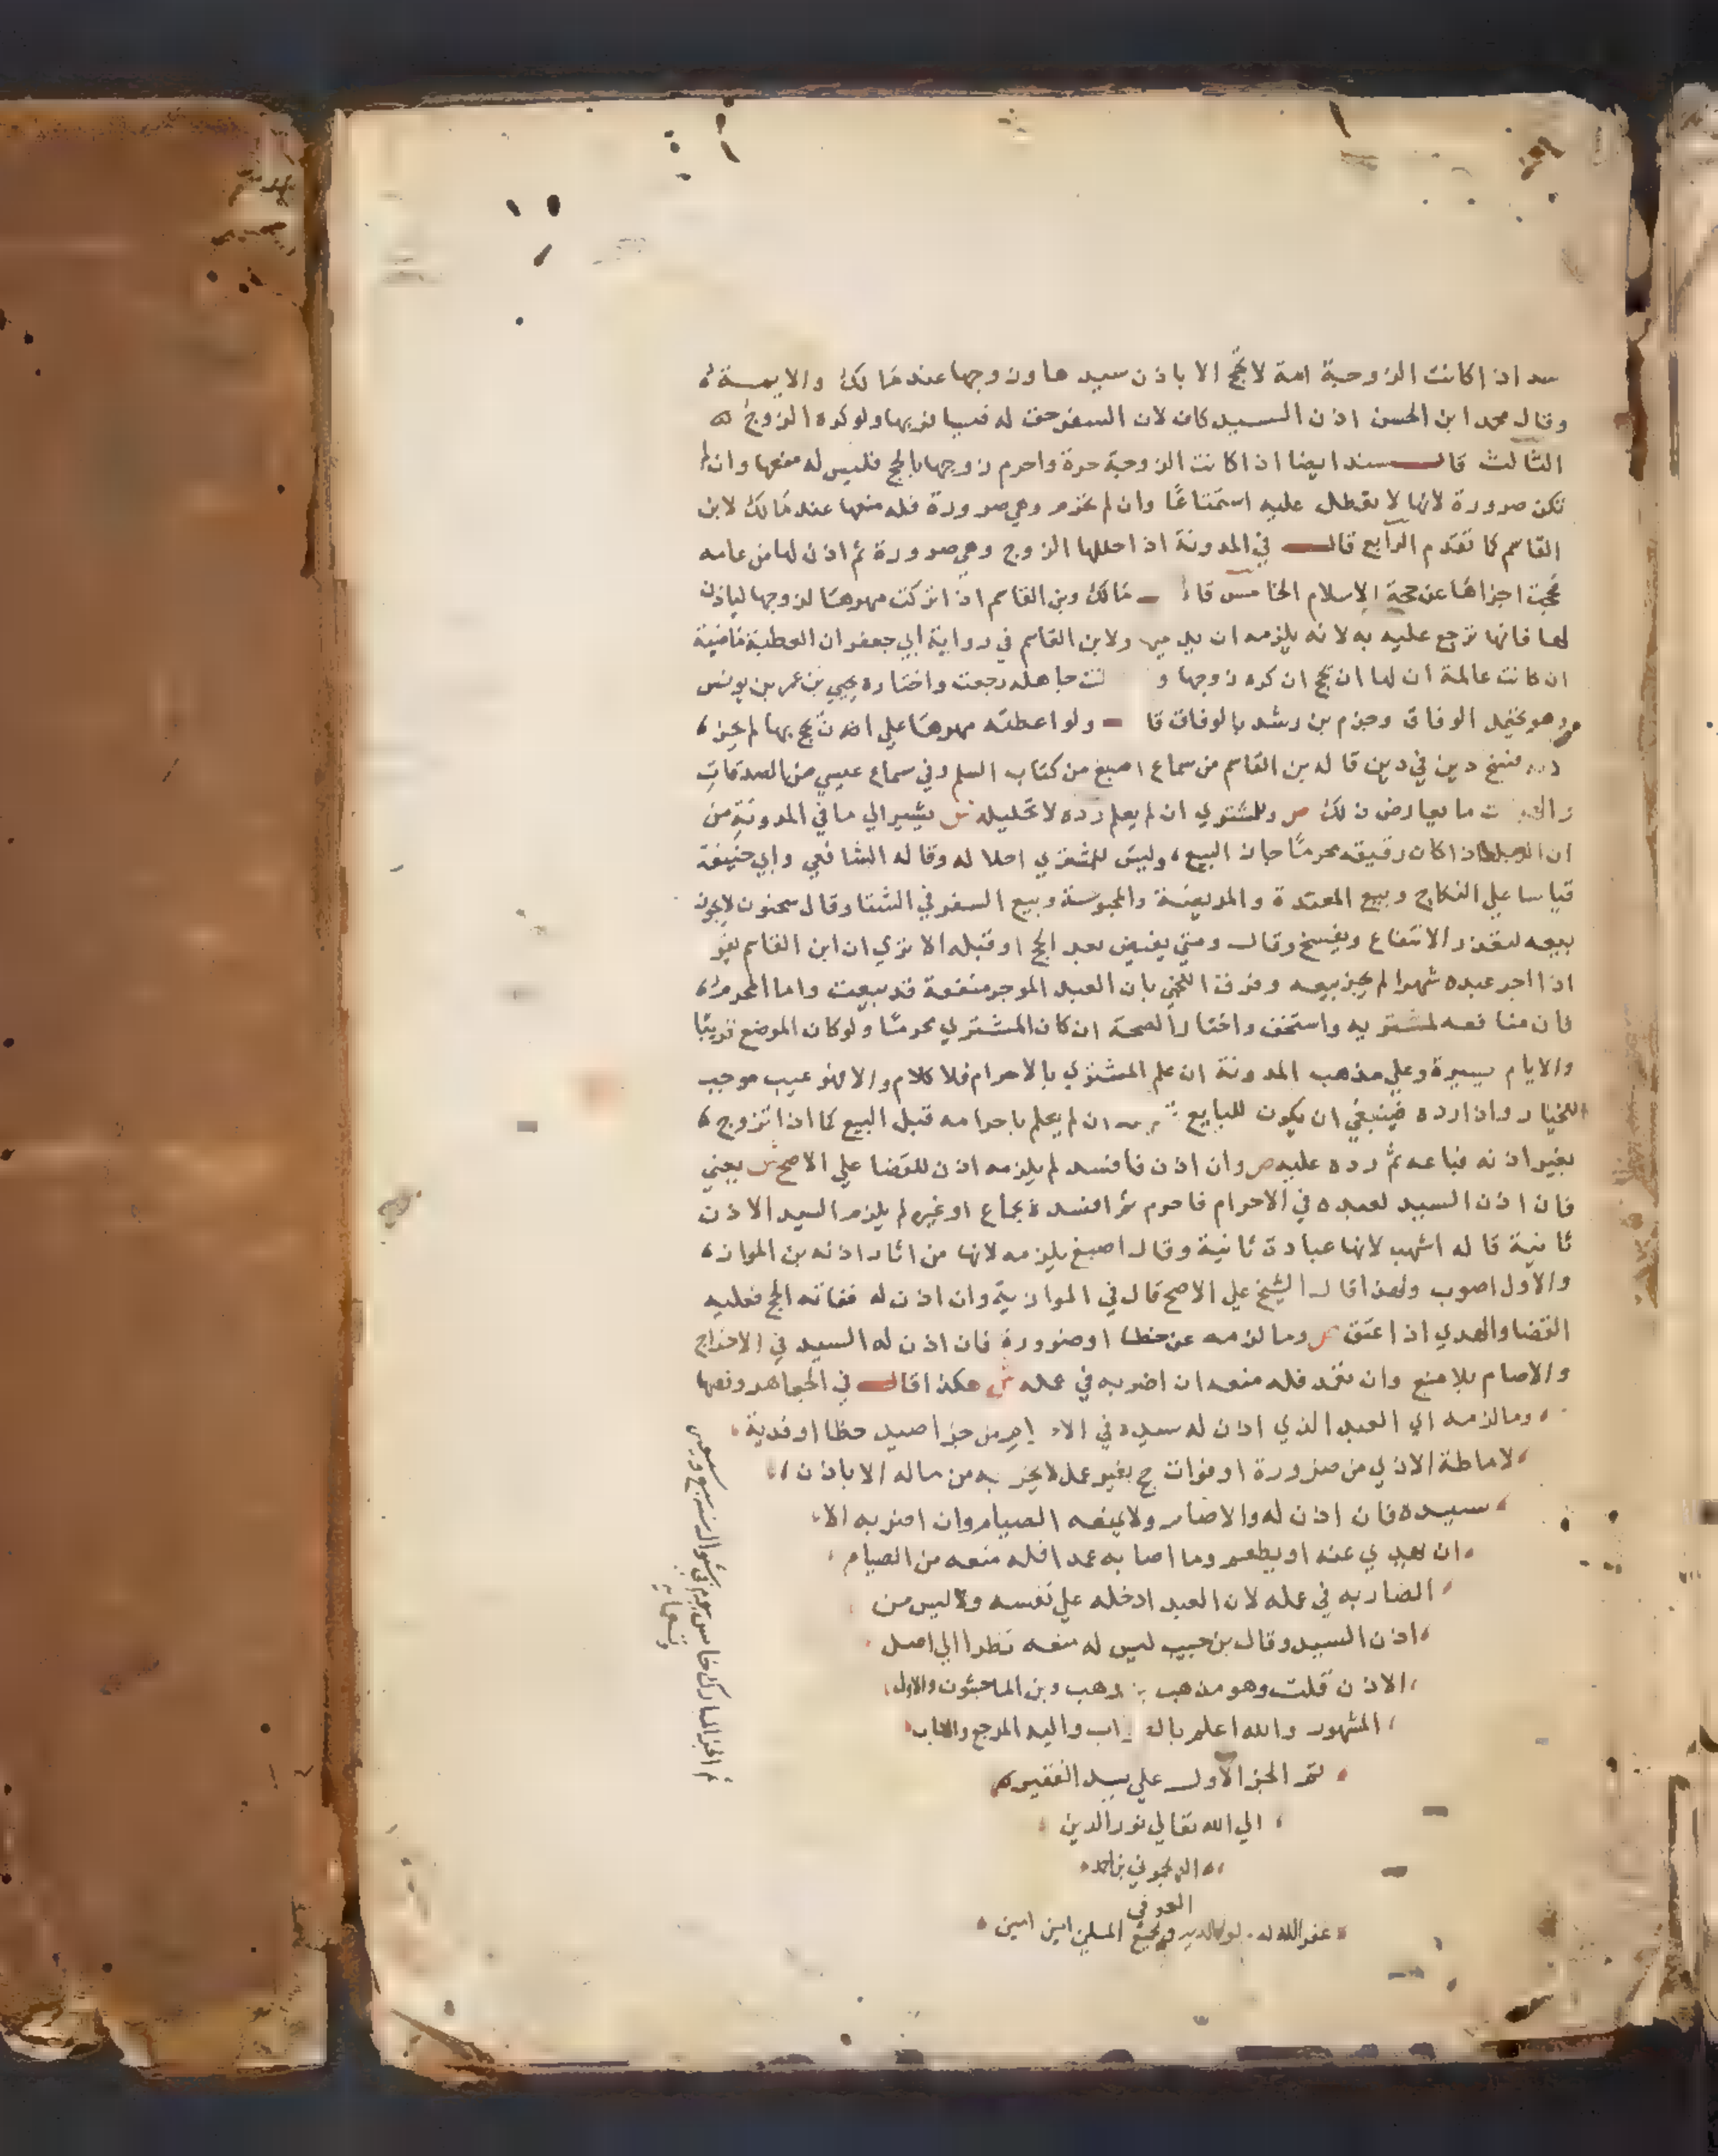 سند اذا كانت الزوجة امة لا تحج الا باذن سيدها وزوجها عند مالك والايمة
وقال محمد ابن الحسن اذن السيد كاف لان السفر حق له فيسافر بها ولو كره الزوج
الثالث قال سند ايضا اذا كانت الزوجة حرة واحرم زوجها بالحج فليس له منعها وان لم
تكن صرورة لانها لا تعطل عليه استمتاعا وان لم يحرم وهي صرورة فله منعها عند مالك لابن
القاسم كما تقدم الرابع قال في المدونة اذا حللها الزوج وهي صرورة ثم اذن لها من عامه
فحجت اجزاها عن حجة الاسلام الخامس قال مالك وبن القاسم اذا تركت مهرها لزوجها لياذن
لها فانها ترجع عليه به لانه يلزمه ان ولابن القاسم في رواية ابي جعفر ان العطية ماضية
ان كانت عالمة ان لها ان تحج ان كره زوجها و نت جاهلة رجعت واختاره يحيي بن عمر بن يونس
وهو يحتمل الوفاق وجزم بن رشد بالوفاق قا ولو اعطته مهرها علي انه تحج بها لم يجز
فسخ دين في دين قاله بن القاسم من سماع اصبغ من كتاب السلم وفي سماع عيسي من الصدقات
ما يعارض ذلك ص وللمشتري ان لم يعلم رده لا تحليله ش يشير الي ما في المدونة من
ان اذا كان رقيقه محرما جاز البيع وليس للمشتري احلاله وقاله الشافعي وابي حنيفة
قياسا علي النكاح وبيع المعتدة والمريضة والمجوسة وبيع السفر في الشتا وقال سحنون لا يجوز
بيعه لتعذر الانتفاع ويفسخ وقال ومتي يقبض بعد الحج او قبله الا تري ان ابن القاسم يقو
اذا اجر عبده شهرا لم يجز بيعه وفرق اللخمي بان العبد الموجر منفعة قد بيعت واما المحرم
فان منافعه لمشتريه واستخف واختار الصحة ان كان المشتري محرما ولو كان الموضع قريبا
والايام يسيرة وعلي مذهب المدونة ان علم المشتري بالاحرام فلا كلام والا فهو عيب موجب
للخيار واذا رده فينبغي ان يكون للبايع ان لم يعلم باحرامه قبل البيع كما اذا تزوج
بغير اذنه فباعه ثم رده عليه ص وان اذن فافسد لم يلزمه اذن للقضا علي الاصح ش يعني
فان اذن السيد لعبده في الاحرام فاحرم ثم افسده بجماع او غيره لم يلزم السيد الاذن
ثانية قاله اشهب لانها عبادة ثانية وقال اصبغ يلزمه لانها من اثار اذنه بن المواز
والاول اصوب ولهذا قال الشيخ علي الاصح قال في الموازية وان اذن له ففاته الحج فعليه
القضا والهدي اذا عتق ص وما لزمه عن خطا او ضرورة فان اذن له السيد في الاخراج
والاصام بلا منع وان تعمد فله منعه ان اضر به في عمله ش هكذا قال في الجواهر ونصها
وما لزمه اي العبد الذي اذن له سيده في من جزا صيد خطا او فدية
لاماطة الاذي من ضرورة او فوات حج بغير عمد لا يخر به من ماله الا باذن
سيده فان اذن له والا صام ولا يمنعه الصيام وان اضر به الا
ان يهدي عنه او يطعم وما اصابه عمدا فله منعه من الصيام
الضار به في عمله لان العبد ادخله علي نفسه وليس من
اذن السيد وقال بن حبيب ليس له منعه نظرا الي اصل
الاذن قلت وهو مذهب وهب وبن الماجشون والاول
المشهور والله اعلم بال اب واليه المرجع والماب
تم الجز الاول علي يد الفقير
الي الله تعالي نور الدين
بن احمد
العوفي
غفر الله له ولوالديه ولجميع المسلمين امين امين
تم الجز المبارك خامس يوم في شوال سنة سبع
وتسعماية